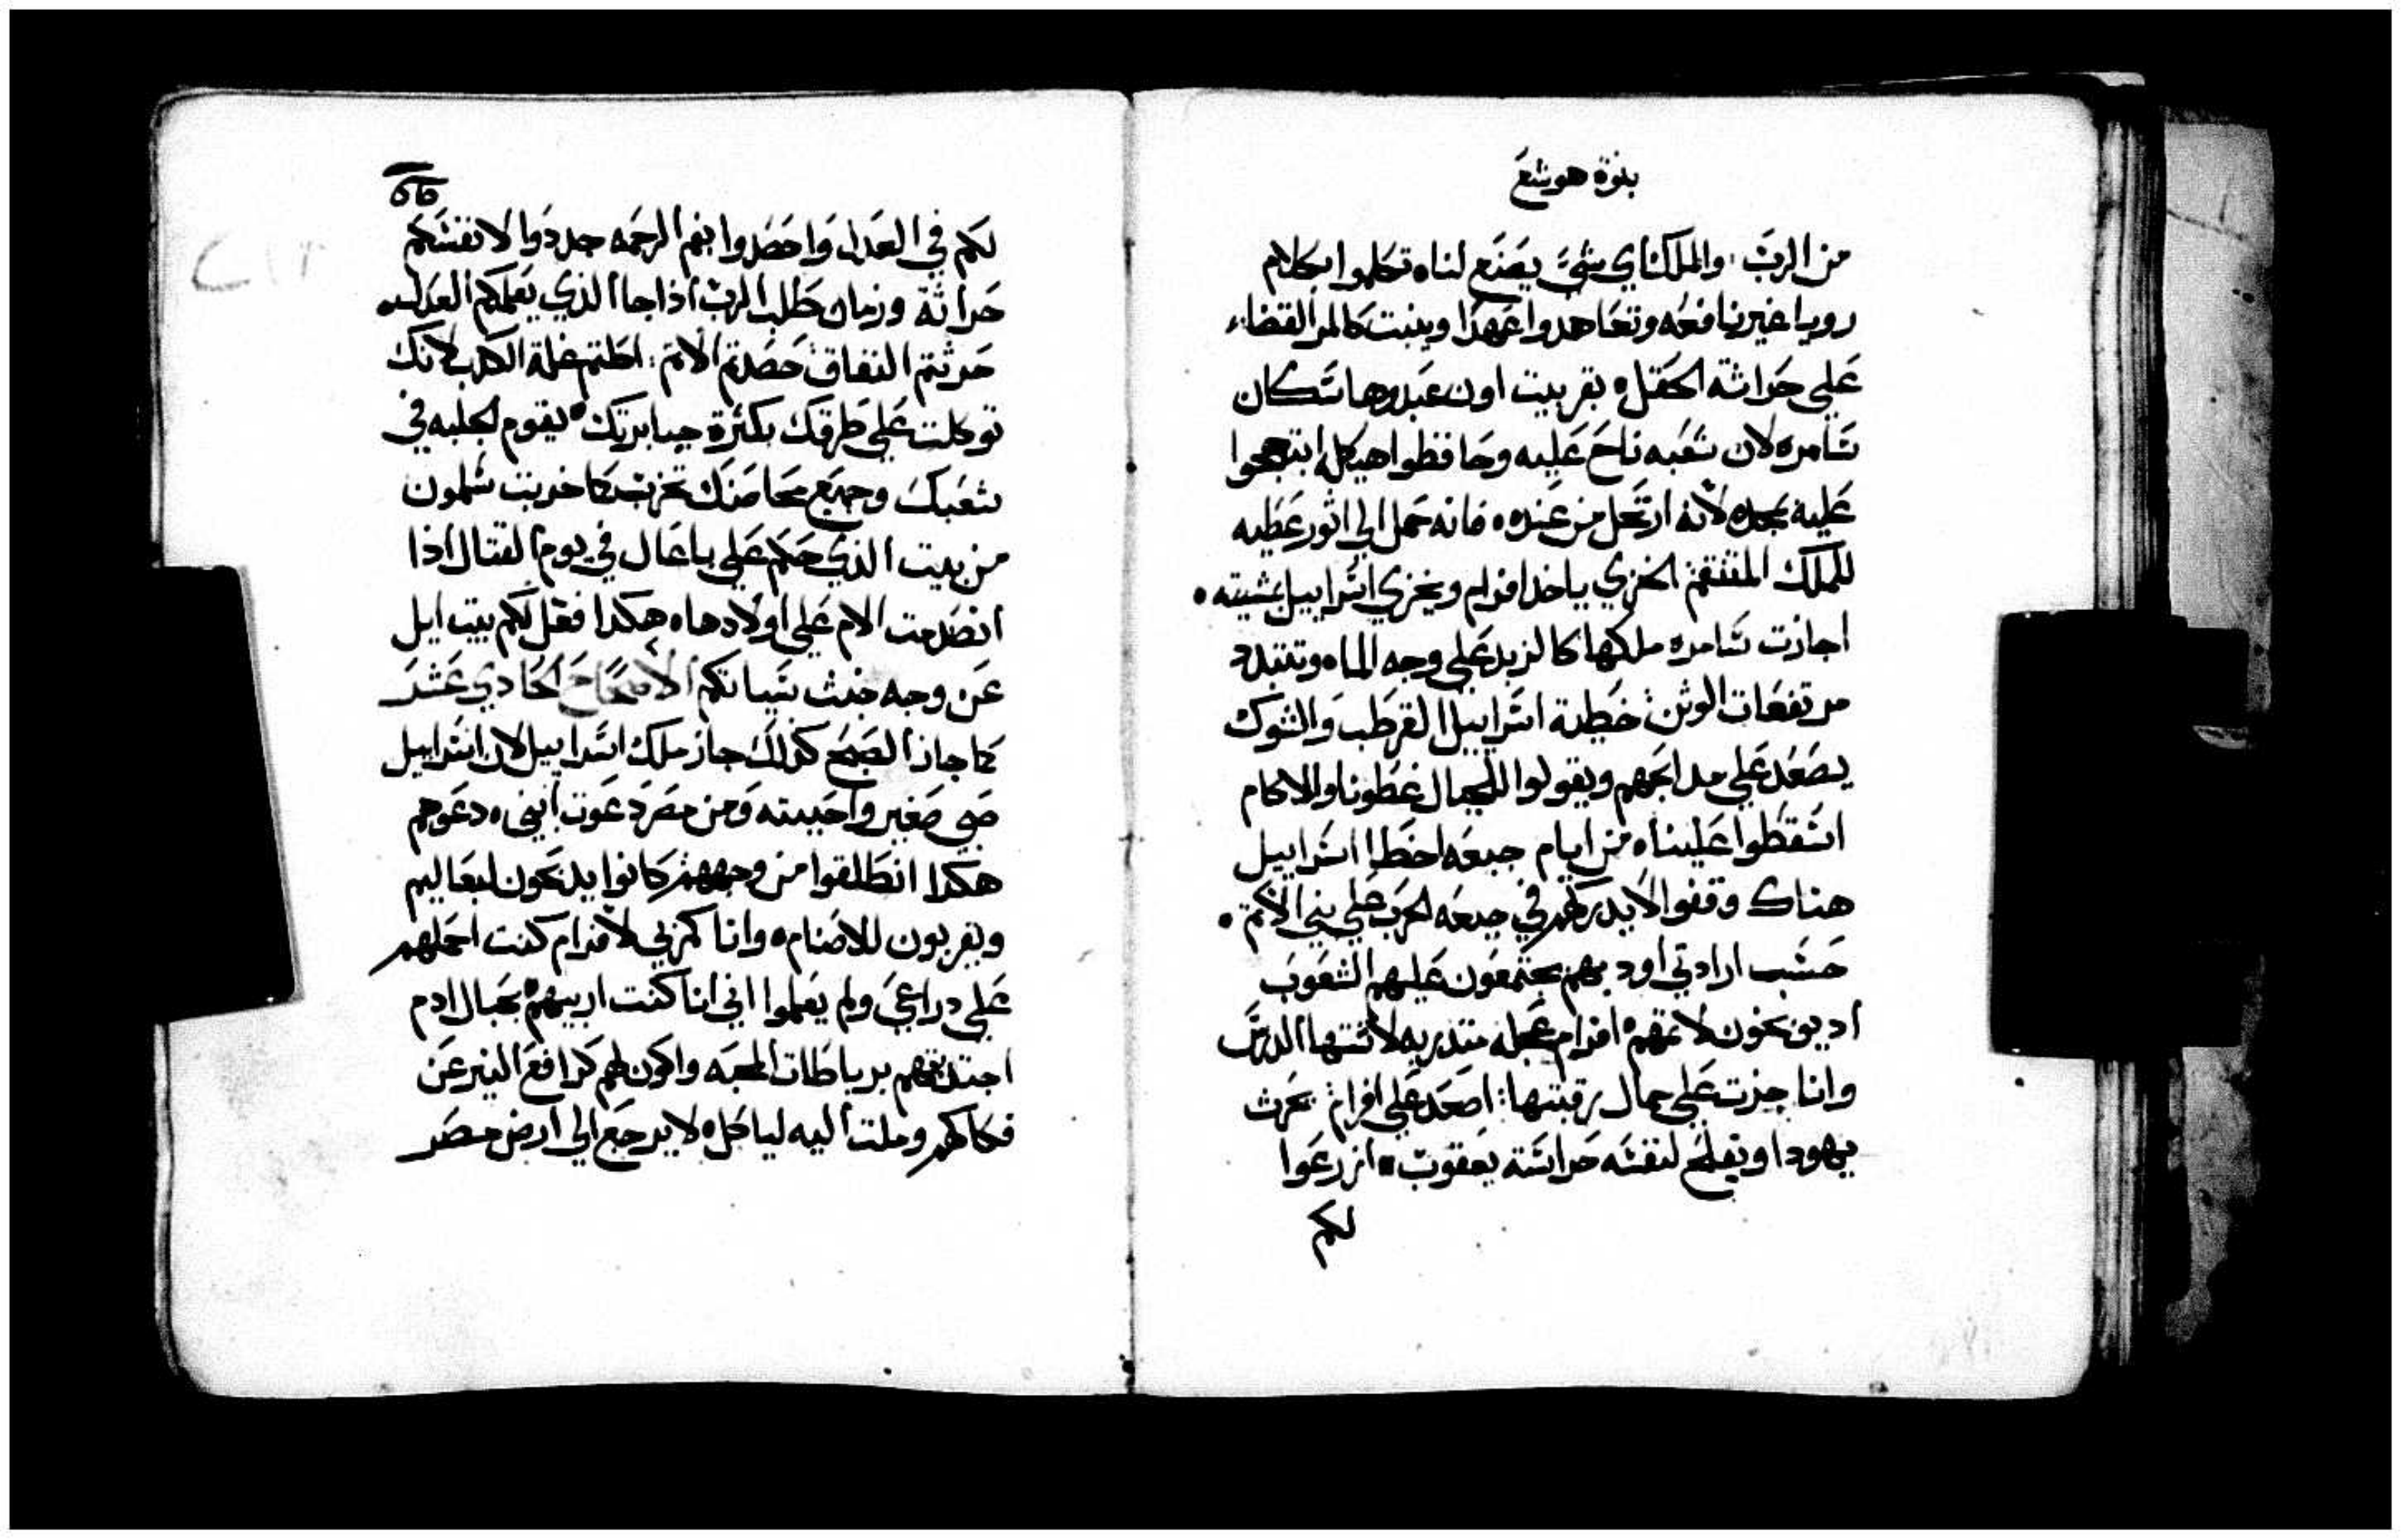 بنوة هوشع
من الرب، والملك اي شي يصنع لنا ه تكلموا بكلام
رويا غير نافعه وتعاهدوا عهدا وينبت كالمر القضاء
علي حراثة الحقل ه بقر بيت اون عبدوها سكان
سامره لان شعبه ناح عليه وحافظوا هيكله ابتهجوا
عليه بمجده لانه ارتحل من عنده ه فانه حمل الي اثور عطيه
للملك المنتقم الخزي ياخد افرام ويخزي اسراييل بمشيته ه
اجازت سامره ملكها كالزبد علي وجه الماه وتتبدد
مرتفعات الوثن خطية اسراييل القرطب والشوك
يصعد علي مدابحهم ويقولوا للجبال غطونا وللاكام
اسقطوا علينا ه من ايام جبعه اخطا اسراييل
هناك وقفوا لا يدركهم في جبعه الحرب علي بني الاثمة ه
حسب ارادتي اودبهم يجتمعون عليهم الشعوب
اد يوبخون لاثمهم ه افرام عجله متدربه لاشتها الدراس
وانا جزت علي جمال رقبتها: اصعد علي افرام يحرث
يهودا ويفلح لنفسه حراسته يعقوب ه ازرعوا
لكم
لكم في العدل واحصدوا بفم الرحمه جددوا لانفسكم
حراثة وزمان طلب الرب اذا جا الذي يعلمكم العدل ه
حرثتم النفاق حصدتم الاثم: اكلتم غلة الكدب لانك
توكلت علي طرقك بكثرة جبابرتك ه يقوم الجلبه في
شعبك وجميع محاصنك تخرب كما خربت شلمون
من بيت الذي حكم علي باعال في يوم القتال اذا
انصدمت الام علي اولادها ه هكدا فعل لكم بيت ايل
عن وجه خبث سياتكم الاصحاح الحادي عشر
كما جاز الصبح كذلك جاز ملك اسراييل لان اسراييل
صبي صغير واحببته ومن مصر دعوت ابني ه دعوهم
هكدا انطلقوا من وجههم كانوا يدبحون لبعاليم
ويقربون للاصنام ه وانا كمربي لافرام كنت احملهم
علي دراعي ولم يعلموا اني انا كنت اربيهم ه بحبال ادم
اجتدبتهم برباطات المحبه واكون لهم كرافع النير عن
فكاكهم وملت اليه لياكل ه لا يرجع الي ارض مصر